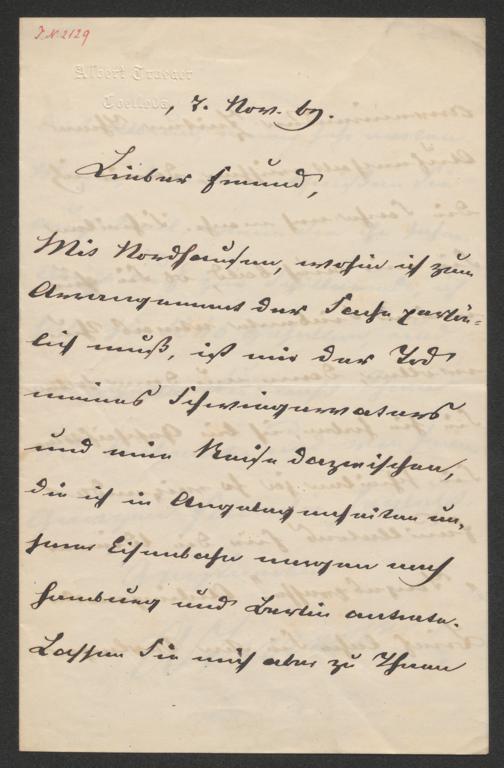 J.N. 2129
Albert Traeger
Coelleda
, 7. Nov. 69.
Lieber Freund,
Mit Nordhausen, wohin ich zum
Arrangement der Sache persön-
lich muß, ist mir der Tod
meines Schwiegervaters
und eine Reise dazwischen,
die ich in Angelegenheiten un-
serer Eisenbahn morgen nach
Hamburg und Berlin antrete.
Lassen Sie mich aber zu Ihnen